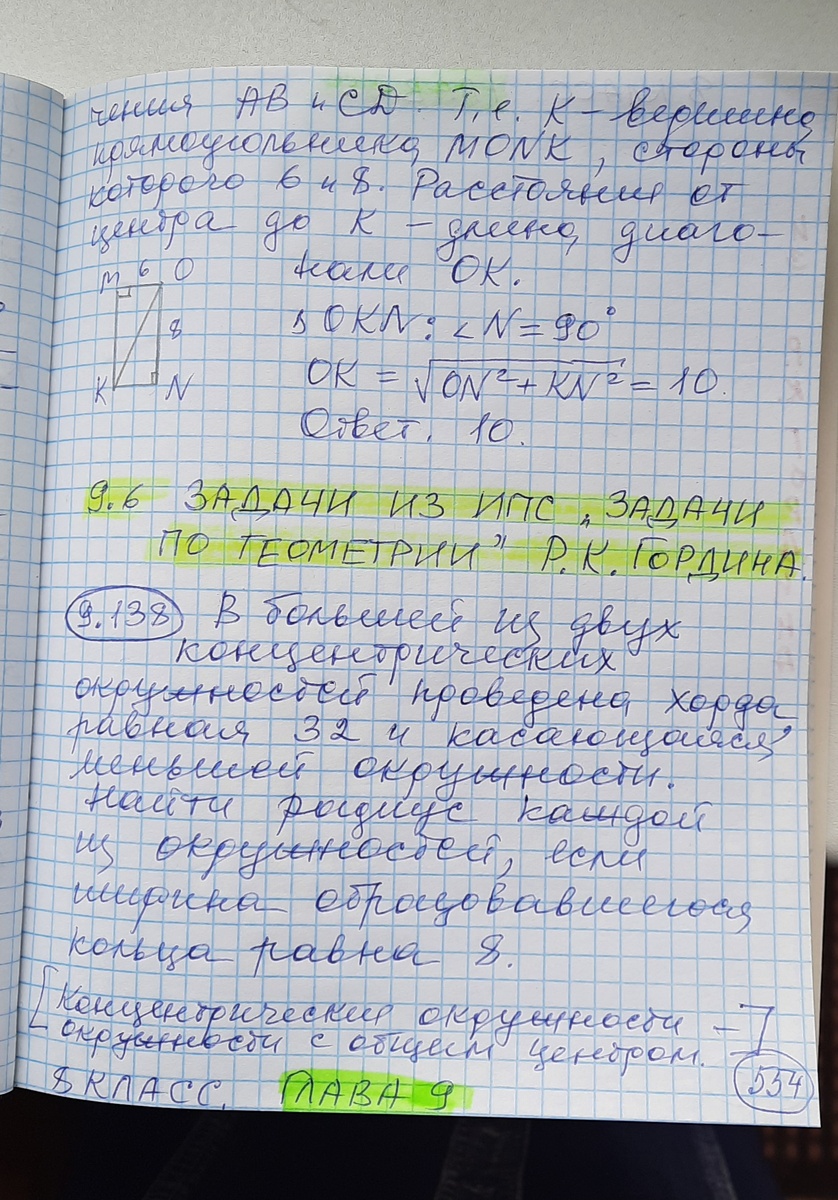 чения AB и CD. Т.е. K – вершина
прямоугольника MONK, стороны
которого 6 и 8. Расстояние от
центра до K – длина диаго-
нали OK.
M 6 O
8
K N
△OKN: ∠N = 90°
OK = √ON² + KN² = 10.
Ответ. 10.
9.6 ЗАДАЧИ ИЗ ИПС „ЗАДАЧИ
ПО ГЕОМЕТРИИ" Р.К. ГОРДИНА.
9.138 В большей из двух
концентрических
окружностей проведена хорда,
равная 32 и касающаяся
меньшей окружности.
Найти радиус каждой
из окружностей, если
ширина образовавшегося
кольца равна 8.
[Концентрические окружности –
окружности с общим центром.]
8 КЛАСС. ГЛАВА 9
534